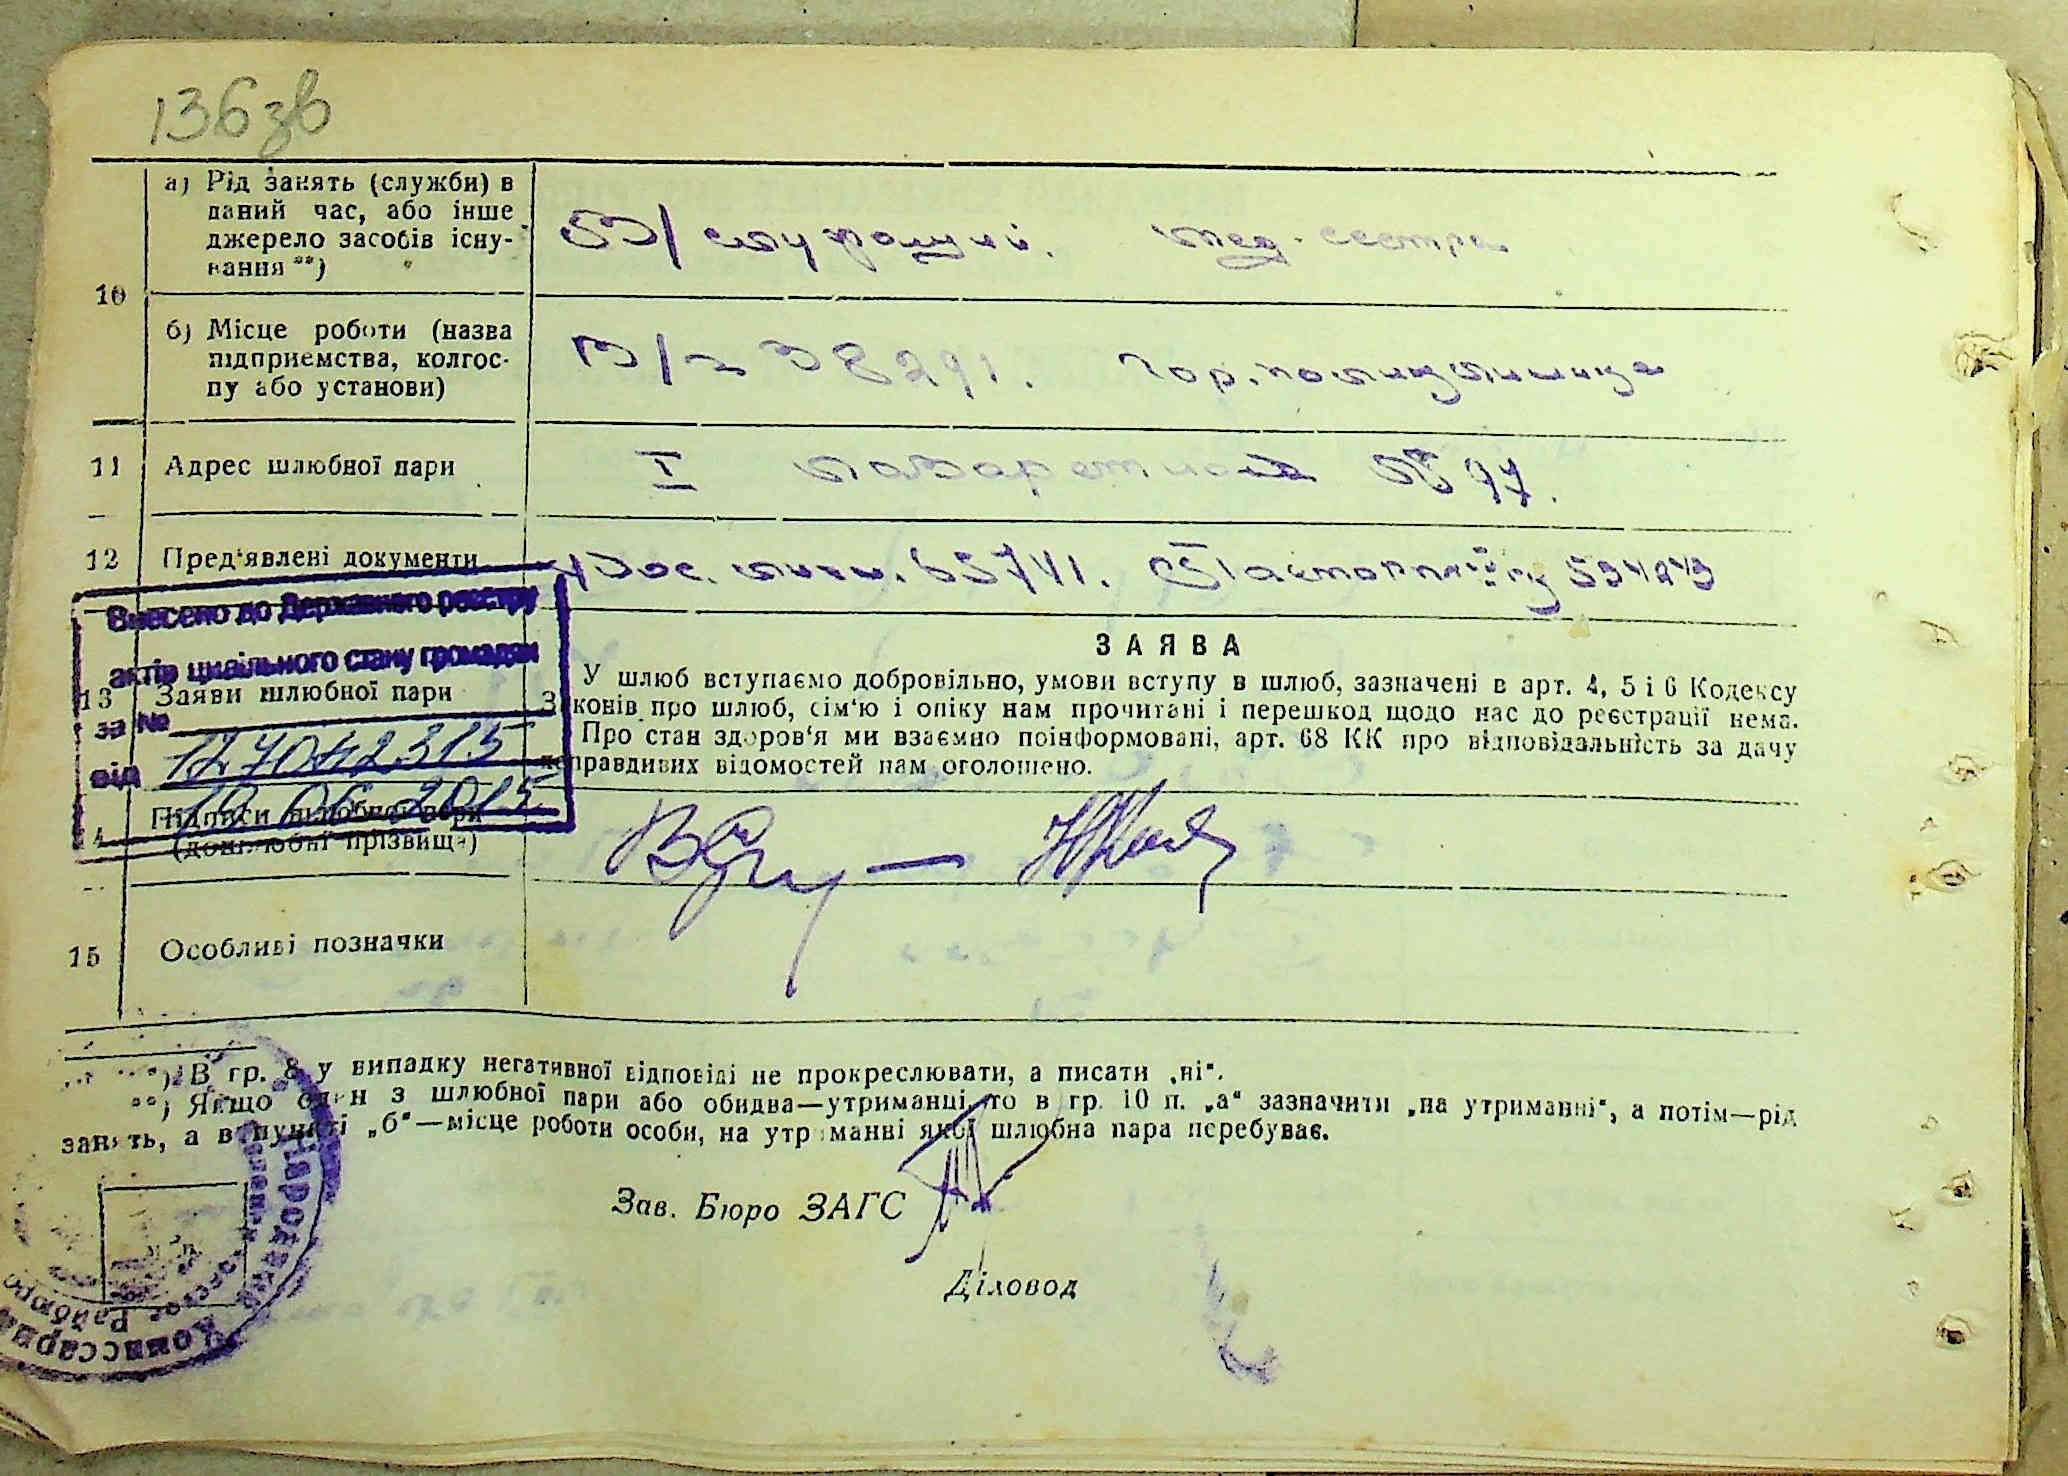 136зв
10
а) Рід занять (служби) в
даний час, або інше
джерело засобів існу-
вання **)
В/служащий. мед. сестра
б) Місце роботи (назва
підприємства, колгос-
пу або установи)
В/ч 38291. Гор. поликлиника
11 Адрес шлюбної пари
I Лазаретная № 97.
12 Пред'явлені документи
удос. личн. 65741. Паспорт
Внесено до Державного реєстру
актів цивільного стану громадян
за № 127042315
від 10 06 2015
ЗАЯВА
13 Заяви шлюбної пари
У шлюб вступаємо добровільно, умови вступу в шлюб, зазначені в арт. 4, 5 і 6 Кодексу
Законів про шлюб, сім'ю і опіку нам прочитані і перешкод щодо нас до реєстрації нема.
Про стан здоров'я ми взаємно поінформовані, арт. 68 КК про відповідальність за дачу
неправдивих відомостей нам оголошено.
14 Підписи шлюбної пари
(дошлюбні прізвища)
15 Особливі позначки
*) В гр. 8 у випадку негативної відповіді не прокреслювати, а писати „ні".
**) Якщо один з шлюбної пари або обидва—утриманці, то в гр. 10 п. „а" зазначити „на утриманні", а потім—рід
занять, а в пункті „б"—місце роботи особи, на утриманні якої шлюбна пара перебуває.
Зав. Бюро ЗАГС
Діловод
м. п.
Народный
Комиссариат
Райбюро